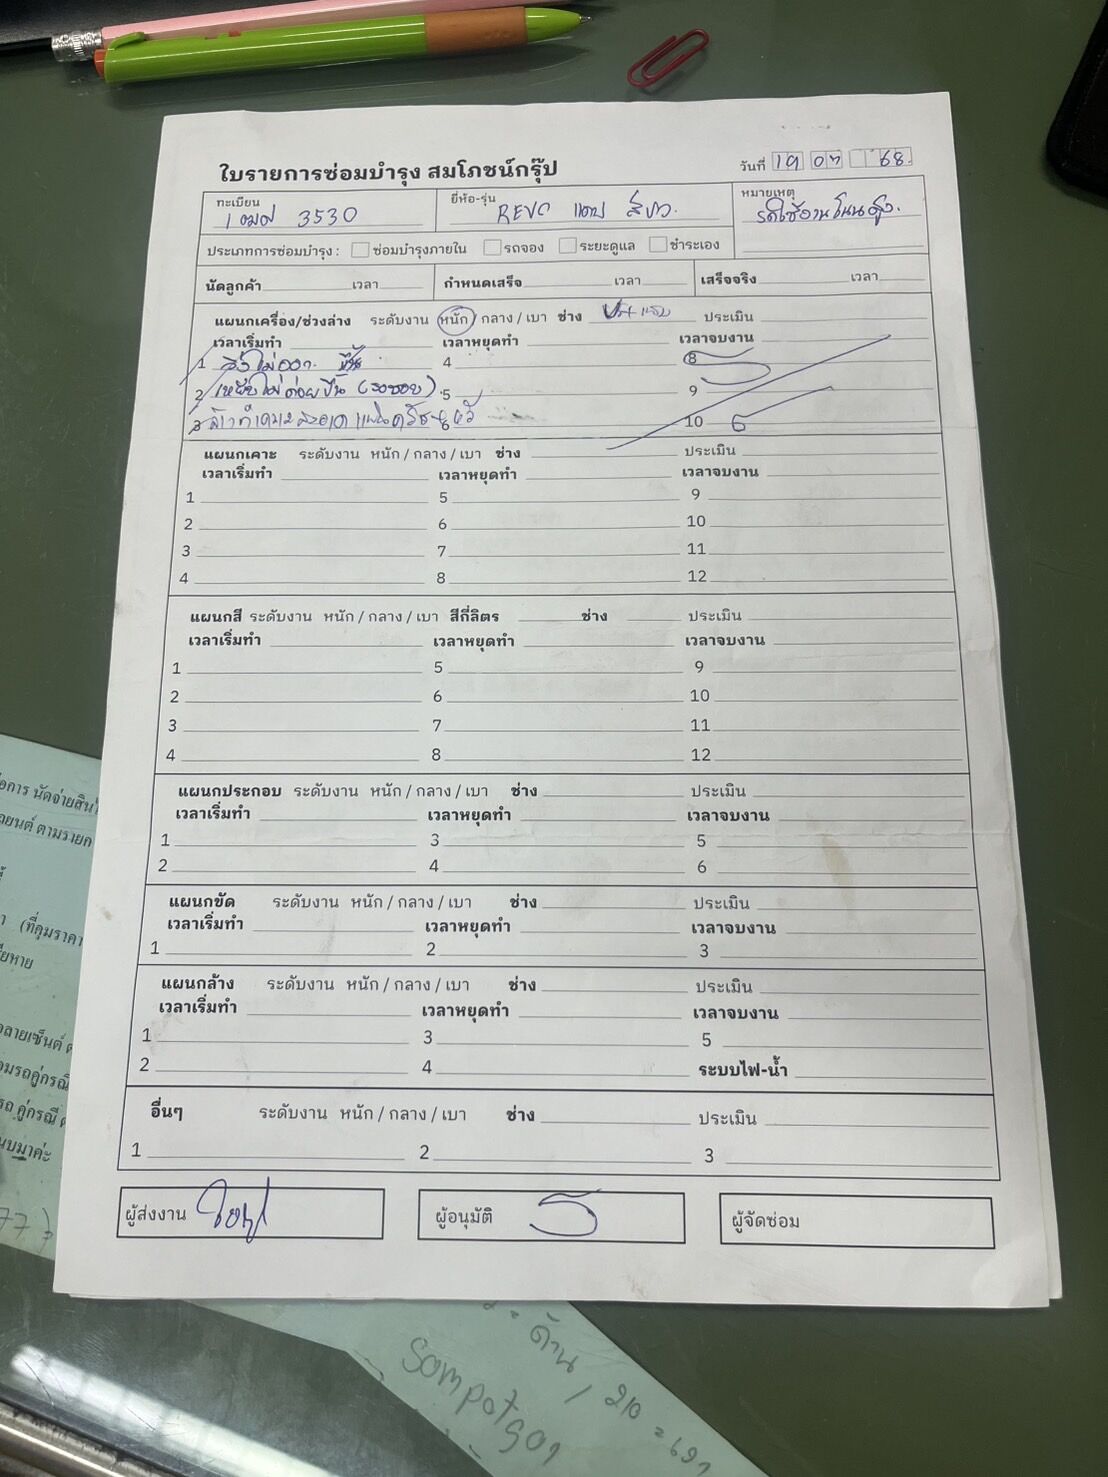 ใบรายการซ่อมบำรุง สมโภชน์กรุ๊ป
วันที่ 19 07 68
ทะเบียน 3530
ยี่ห้อ-รุ่น REVO แคป
หมายเหตุ
ประเภทการซ่อมบำรุง : ซ่อมบำรุงภายใน รถจอง ระยะดูแล ชำระเอง
นัดลูกค้า เวลา กำหนดเสร็จ เวลา เสร็จจริง เวลา
แผนกเครื่อง/ช่วงล่าง ระดับงาน หนัก / กลาง / เบา ช่าง ประเมิน
เวลาเริ่มทำ เวลาหยุดทำ เวลาจบงาน
1 วิ่งไม่ออก 4 8
2 5 9
3 6 10
แผนกเคาะ ระดับงาน หนัก / กลาง / เบา ช่าง ประเมิน
เวลาเริ่มทำ เวลาหยุดทำ เวลาจบงาน
1 5 9
2 6 10
3 7 11
4 8 12
แผนกสี ระดับงาน หนัก / กลาง / เบา สีกี่ลิตร ช่าง ประเมิน
เวลาเริ่มทำ เวลาหยุดทำ เวลาจบงาน
1 5 9
2 6 10
3 7 11
4 8 12
แผนกประกอบ ระดับงาน หนัก / กลาง / เบา ช่าง ประเมิน
เวลาเริ่มทำ เวลาหยุดทำ เวลาจบงาน
1 3 5
2 4 6
แผนกขัด ระดับงาน หนัก / กลาง / เบา ช่าง ประเมิน
เวลาเริ่มทำ เวลาหยุดทำ เวลาจบงาน
1 2 3
แผนกล้าง ระดับงาน หนัก / กลาง / เบา ช่าง ประเมิน
เวลาเริ่มทำ เวลาหยุดทำ เวลาจบงาน
1 3 5
2 4 ระบบไฟ-น้ำ
อื่นๆ ระดับงาน หนัก / กลาง / เบา ช่าง ประเมิน
1 2 3
ผู้ส่งงาน
ผู้อนุมัติ
ผู้จัดซ่อม
นัดจ่ายสิน
ยนต์ ตามราย
(ที่คุมราคา
ลายเซ็นต์
รถคู่กรณี
คู่กรณี
มาค่ะ
ด้าน / 210